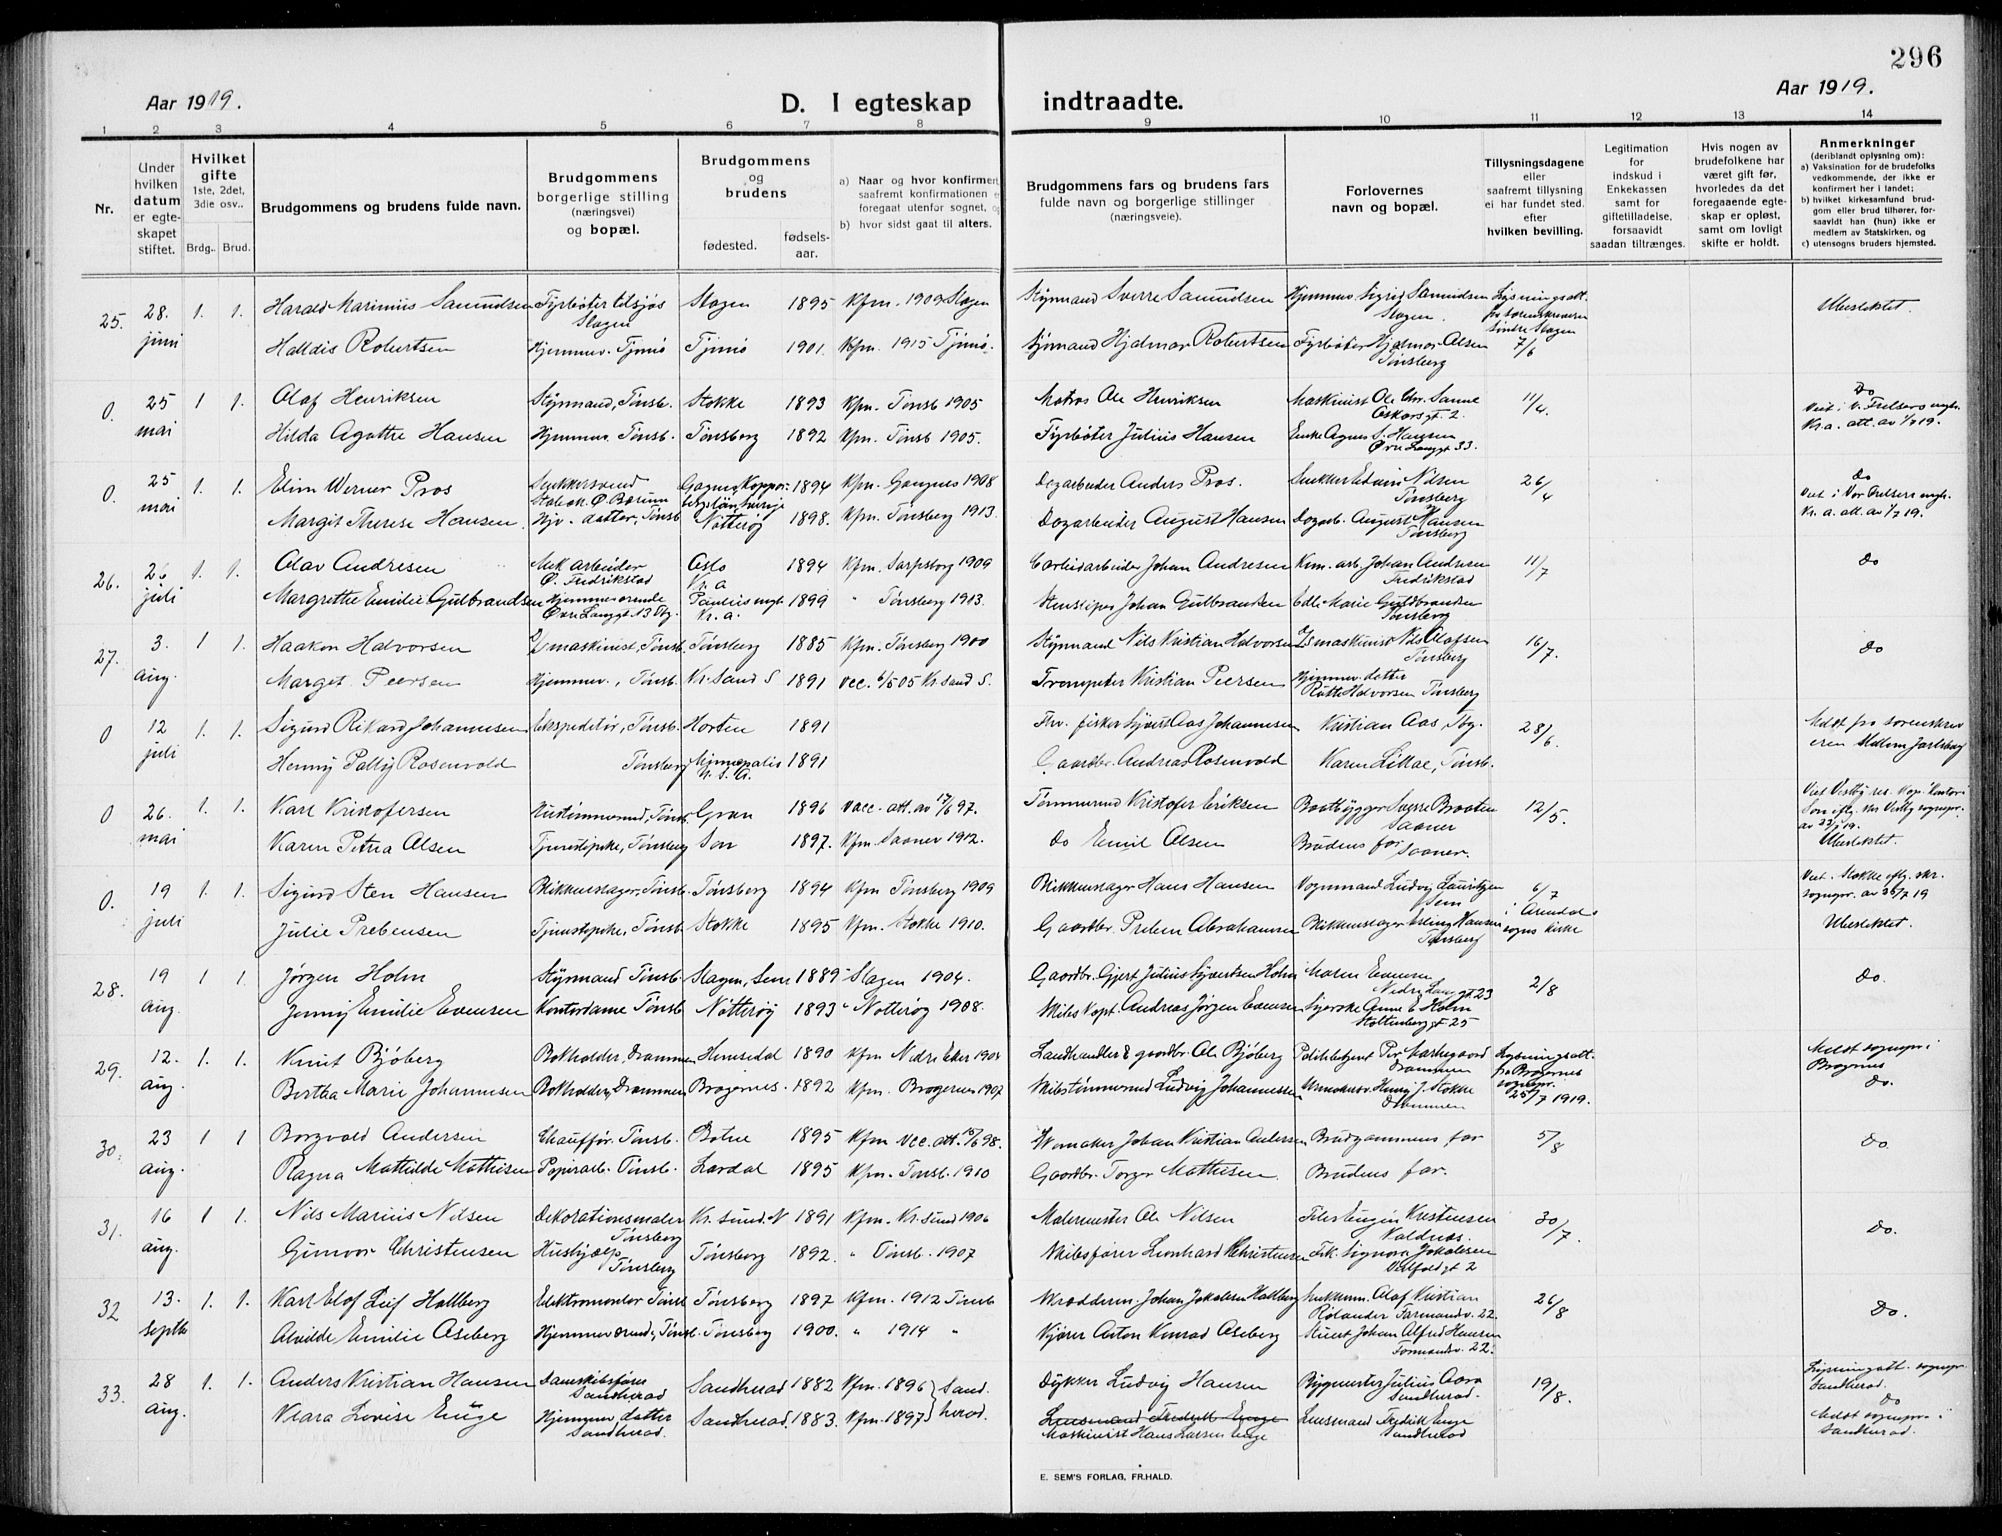 296
Aar 1919.
D. I egteskap indtraadte.
Aar 1919.
1 2 3 4 5 6 7 8 9 10 11 12 13 14
Nr.
Under hvilken datum er egteskapet stiftet.
Hvilket gifte 1ste, 2det, 3die osv..
Brdg.. Brud.
Brudgommens og brudens fulde navn.
Brudgommens borgerlige stilling (næringsvei) og bopæl.
Brudgommens og brudens
fødested. fødselsaar.
a) Naar og hvor konfirmert
saafremt konfirmationen
foregaat utenfor sognet,
b) hvor sidst gaat til alters.
Brudgommens fars og brudens fars
fulde navn og borgerlige stillinger
(næringsveie).
Forlovernes
navn og bopæl.
Tillysningsdagene
eller
saafremt tillysning
ei har fundet sted.
efter
hvilken bevilling.
Legitimation
for
indskud i
Enkekassen
samt for
giftetilladelse,
forsaavidt
saadan tiltrænges.
Hvis nogen av
brudefolkene har
været gift før,
hvorledes da det
foregaaende egte-
skap er opløst,
samt om lovligt
skifte er holdt.
Anmerkninger
(deriblandt oplysning om):
a) Vaksination for de brudefolks
vedkommende, der ikke er
konfirmert her i landet;
b) hvilket kirkesamfund brud-
gom eller brud tilhører, for-
saavidt han (hun) ikke er
medlem av Statskirken, og
c) utensogns bruders hjemsted.
25. 28. juni 1. 1. Harald Marinius Samudsen Fyrbøter tilsjøs Slagen Slagen 1895 Kfm. 1909 Slagen Styrmand Sverre Samudsen Hjemmev. Sigrid Samudsen Slagen. Lysningsatt. fra sorenskriveren søndre Slagen 7/6 Ubeslektet.
Halldis Robertsen Hjemmev. Tjømø Tjømø 1901. Kfm. 1915 Tjømø. Sjømand Hjalmar Robertsen Fyrbøter Hjalmar Olsen Tønsberg
0. 25 mai 1 1. Olaf Henriksen Styrmand, Tønsb. Stokke 1893 Kfm. Tønsb 1905 Matros Ole Henriksen Maskinist Ole Chr. Sanne Oskarsgt. 2. 11/4. Do
Hilda Agathe Hansen Hjemmev. Tønsb. Tønsberg 1892 Kfm. Tønsb 1905. Fyrbøter Julius Hansen Enke Agnes S. Hansen Øvre Langgt 33. Kr.a. att. av 1/7 19.
0. 25 mai 1. 1. Elim Werner Pros 1894 Kfm. 1908 Dagarbeider Anders Pros. Snekker Edwin Nilsen Tønsberg 26/4 Do
Margit Therese Hansen. datter, Tønsb Nøtterøy 1898. Kfm. Tønsberg 1913. Dagarbeider August Hansen Dagarb. August Hansen Tønsberg Kr.a. att. av 1/7 19.
26. 26 juli 1. 1. Olav Andresen Mek arbeider Ø. Fredrikstad Oslo Kr. a 1894 Kfm. Sarpsborg 1909 Johan Andresen Johan Andresen Fredrikstad 11/7 Do
Margrethe Emilie Gulbrandsen Hjemmeværende Øvre Langgt 13 Tbg. Paulus Kr.a. 1899 " Tønsberg 1913. Stensliper Johan Gulbrandsen Edle Marie Guldbrandsen Tønsberg
27. 3. aug. 1 1. Haakon Halvorsen 2/maskinist, Tønsb. Tønsberg 1885 Kfm. Tønsberg 1900 Styrmand Nils Kristian Halvorsen 2/smaskinist Nils Olafsen Tønsberg 16/7. Do
Marget Peersen Hjemmev., Tønsb. Kr. Sand S 1891 Vcc. 6/505 Kr. Sand S. Trompeter Kristian Peersen Hjemmev. datter Ruth Halvorsen Tønsberg
0 12 juli 1. 1. Sigurd Rikard Johannesen Ekspeditør, Tønsb. Horten 1891 Fhv. fisker Syvert Aas Johannesen Kristian Aas, Tbg. 28/6. Meldt fra sorenskriveren Mellem Jarlsberg
Henny Palky Rosenvold Tønsberg U.S.A. 1891 Gaardbr. Andreas Rosenvold Karen Likae, Tønsb.
0 26. mai 1. 1. Karl Kristofersen Hustømmermd, Tønsb. Gran 1896 Vacc. att. av 17/6 97. Tømmermd Kristofer Eriksen Baatbygger Sverre Braaten Saaner 12/5. av 22/7 19.
Karen Petra Olsen Tjenestepike, Tønsberg Son 1897. Kfm. Saaner 1912. Do Emil Olsen Brudens far Saaner. Ubeslektet.
0. 19 juli 1. 1. Sigurd Sten Hansen Blikkenslager, Tønsb. Tønsberg 1894 Kfm Tønsberg 1909 Blikkenslager Hans Hansen Vognmand Ludvig Lauritzen Sem 6/7 i Arendals sogns kirke Viet i Stokke eftg. skr. sognepr. av 26/7 19
Julie Prebensen Tjenestepike, Tønsb Stokke 1895 Kfm. Stokke 1910. Gaardbr. Preben Abrahamsen Blikkenslager Erling Hansen Tønsberg Ubeslektet.
28. 19 aug. 1 1 Jørgen Holm Styrmand Tønsb. Slagen, Sem 1889 " Slagen 1904. Gaardbr. Gjert Julius Syvertsen Holm Maren Evensen Nedre Langgt 23 2/8 Do.
Jenny Emilie Evensen Kontordame Tønsb Nøtterøy 1893 " Nøtterøy 1908. Skibskapt. Andreas Jørgen Evensen Syerske Anne E Holm Stoltenberggt 25
29. 12. aug. 1. 1. Knut Bjøberg Bokholder, Drammen Hemsedal 1890 Kfm Nedre Eker 1904 Landhandler & gaardbr. Ole Bjøberg Politibetjent Per Aarhegaard Drammen Lysningsatt. fra Bragernes sognepr. 25/7 1919. Meldt sognepr. i Bragernes
Bertha Marie Johannesen Bokholder, Drammen Bragernes. 1892 Kfm. Bragernes 1907 Skibstømmermd Ludvig Johannessen Henry J. Stokke Drammen Do.
30. 23 aug. 1 1 Borgvald Andersen Chauffør. Tønsb. Botne 1895 Kfm Vcc. att. 15/6 98. Johan Kristian Andersen Brudgommens far 5/8 Do.
Ragna Mathilde Mathisen Papirarb. Tønsb. Lardal 1895 Kfm. Tønsb. 1910 Gaardbr. Torger Mathisen. Brudens far.
31. 16 aug. 1 1. Nils Marius Nilsen Dekorationsmaler Tønsberg Kr. sund. N 1891 Kfm. Kr. Sund 1906 Malermester Ole Nilsen Kristensen 30/7. Do.
Gunvor Christensen Hushjælp Tønsberg Tønsberg 1892. " Tønsb. 1907 Skibsfører Leonhard Christensen Frk. Signora Jakobsen 2
32 13. septb 1. 1. Karl Elof Leif Hallberg Elektromontør Tønsb Tønsberg 1897 Kfm. 1912 Tønsb Skrædderm. Johan Jakobsen Hallberg Snekkerm. Olaf Kristian Rolander Farmandsv. 22. 26/8 Do.
Alvilde Emilie Aseberg Hjemmeværend, Tønsb. Tønsberg 1900. " 1914 " Kjører Anton Konrad Aseberg Stuert Johan Alfred Hansen Farmandsv. 22.
33. 28 aug. 1. 1. Anders Kristian Hansen Damskibsfører Sandherad Sandherad 1882 Kfm. 1896 } Sand. Dykker Ludvig Hansen Bygmester Julius Aara Sandherad. 19/8. Lysningatt. sognepr. Sandherad. Do
Klara Lovise Enge Hjemmev. datter Sandherad. Sandherad. 1883. Kfm. 1897 } herad. Lensmand Fredrik Enge Maskinist Hans Larsen Enge Lensmand Fredrik Enge Sandherad Meldt sognepr. i Sandherad.
E. SEM'S FORLAG, FR.HALD.